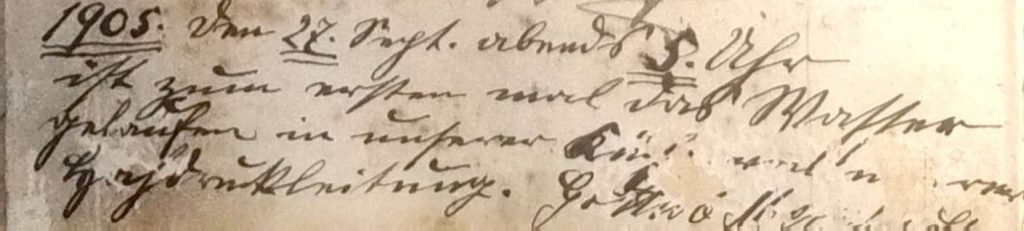 1905. den 27. Sept. abends 5. Uhr
ist zum ersten mal das Wasser
gelaufen in unserer
Hochdruckleitung.